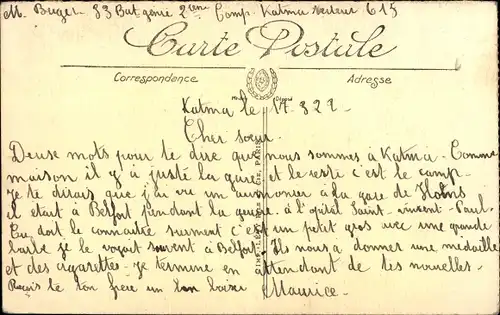 M. Buget 33 Bat genie 2ème Comp. Katma Secteur 615
Carte Postale
Correspondence
Adresse
Katma le 322-
Cher sœur
Deuse mots pour te dire que nous sommes à Katma. Comme
maison il y à juste la gare et le reste c'est le camp
je te dirais que j'ai vu un aumonier à la gare de Homs
il était à Belfort pendant la guerre à l'opital Saint vincent Paul.
tu doit le connaitre surment c'est un petit gros avec une grande
barbe je le voyait souvent à Belfort. Ils nous a donner une medaille
et des cigarettes. je termine en attendant de tes nouvelles-
Reçois de ton frere un bon baiser
Maurice.